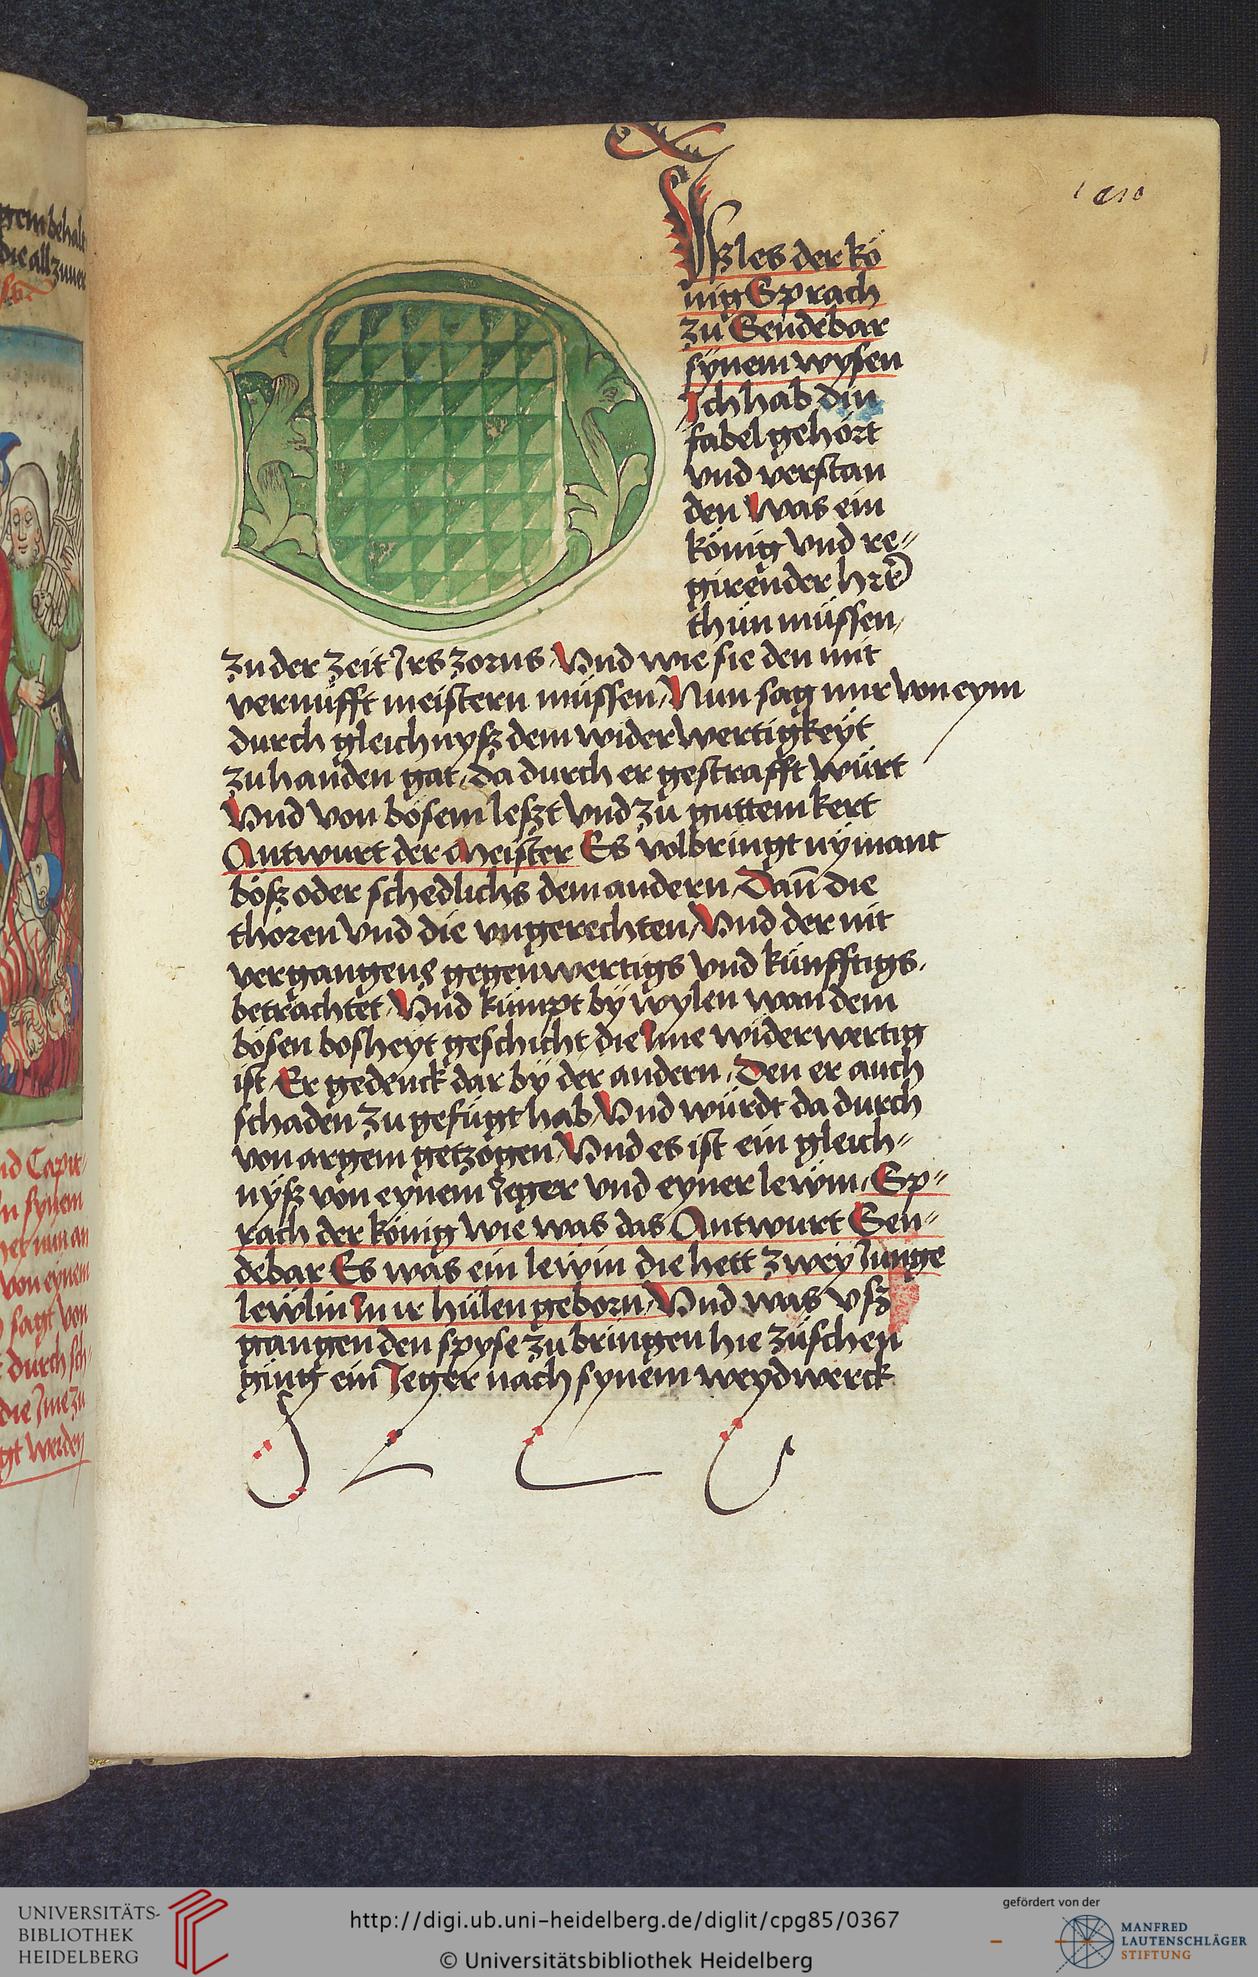 ßles der kö
nig Sprach
zu Sendebar
synem wysen
Ich hab din
fabel gehört
vnd verstan
den Was ein
könig Vnd re=
girender herr
thün müssen,
zu der zeit Irs zorns Vnd wie sie den mit
vernüfft meistern müssen, Nun sag mir Von eym
durch gleichnyß dem widerwertigkeyt
zu handen gat, da durch er gestrafft würt
Vnd von bösem leszt Vnd zu guttem kert
Antwurt der Meister Es volbringt nymant
böß oder schedlichs dem andern, Dan̄ die
thoren Vnd die vngerechten, Vnd der nit
vergangens gegenwertigs Vnd künfftigs,
betrachtet, Vnd kümpt by wylen wan dem
bösen bosheyt geschicht die Ime widerwertig
ist Er gedenck dar by der andern, Den er auch
schaden zu gefügt hab, Vnd würdt da durch
von argem getzogen, Vnd es ist ein gleich=
nyß von eynem Jeger vnd eyner lewin, Sp=
rach der könig wie was das Antwurt Sen=
debar Es was ein lewin die hett zwey Iunge
lewlin In ir hülen geborn, Vnd was vß
gangen den spyse zu bringen hie züschen
ging ein Jeger nach synem weydwerck
nd Capit=
n synem
her nun an
von eynem
sagt von
durch sch=
die Ime zu
gt werden
UNIVERSITÄTS-
BIBLIOTHEK
HEIDELBERG
http://digi.ub.uni-heidelberg.de/diglit/cpg85/0367
© Universitätsbibliothek Heidelberg
gefördert von der
MANFRED
LAUTENSCHLÄGER
STIFTUNG